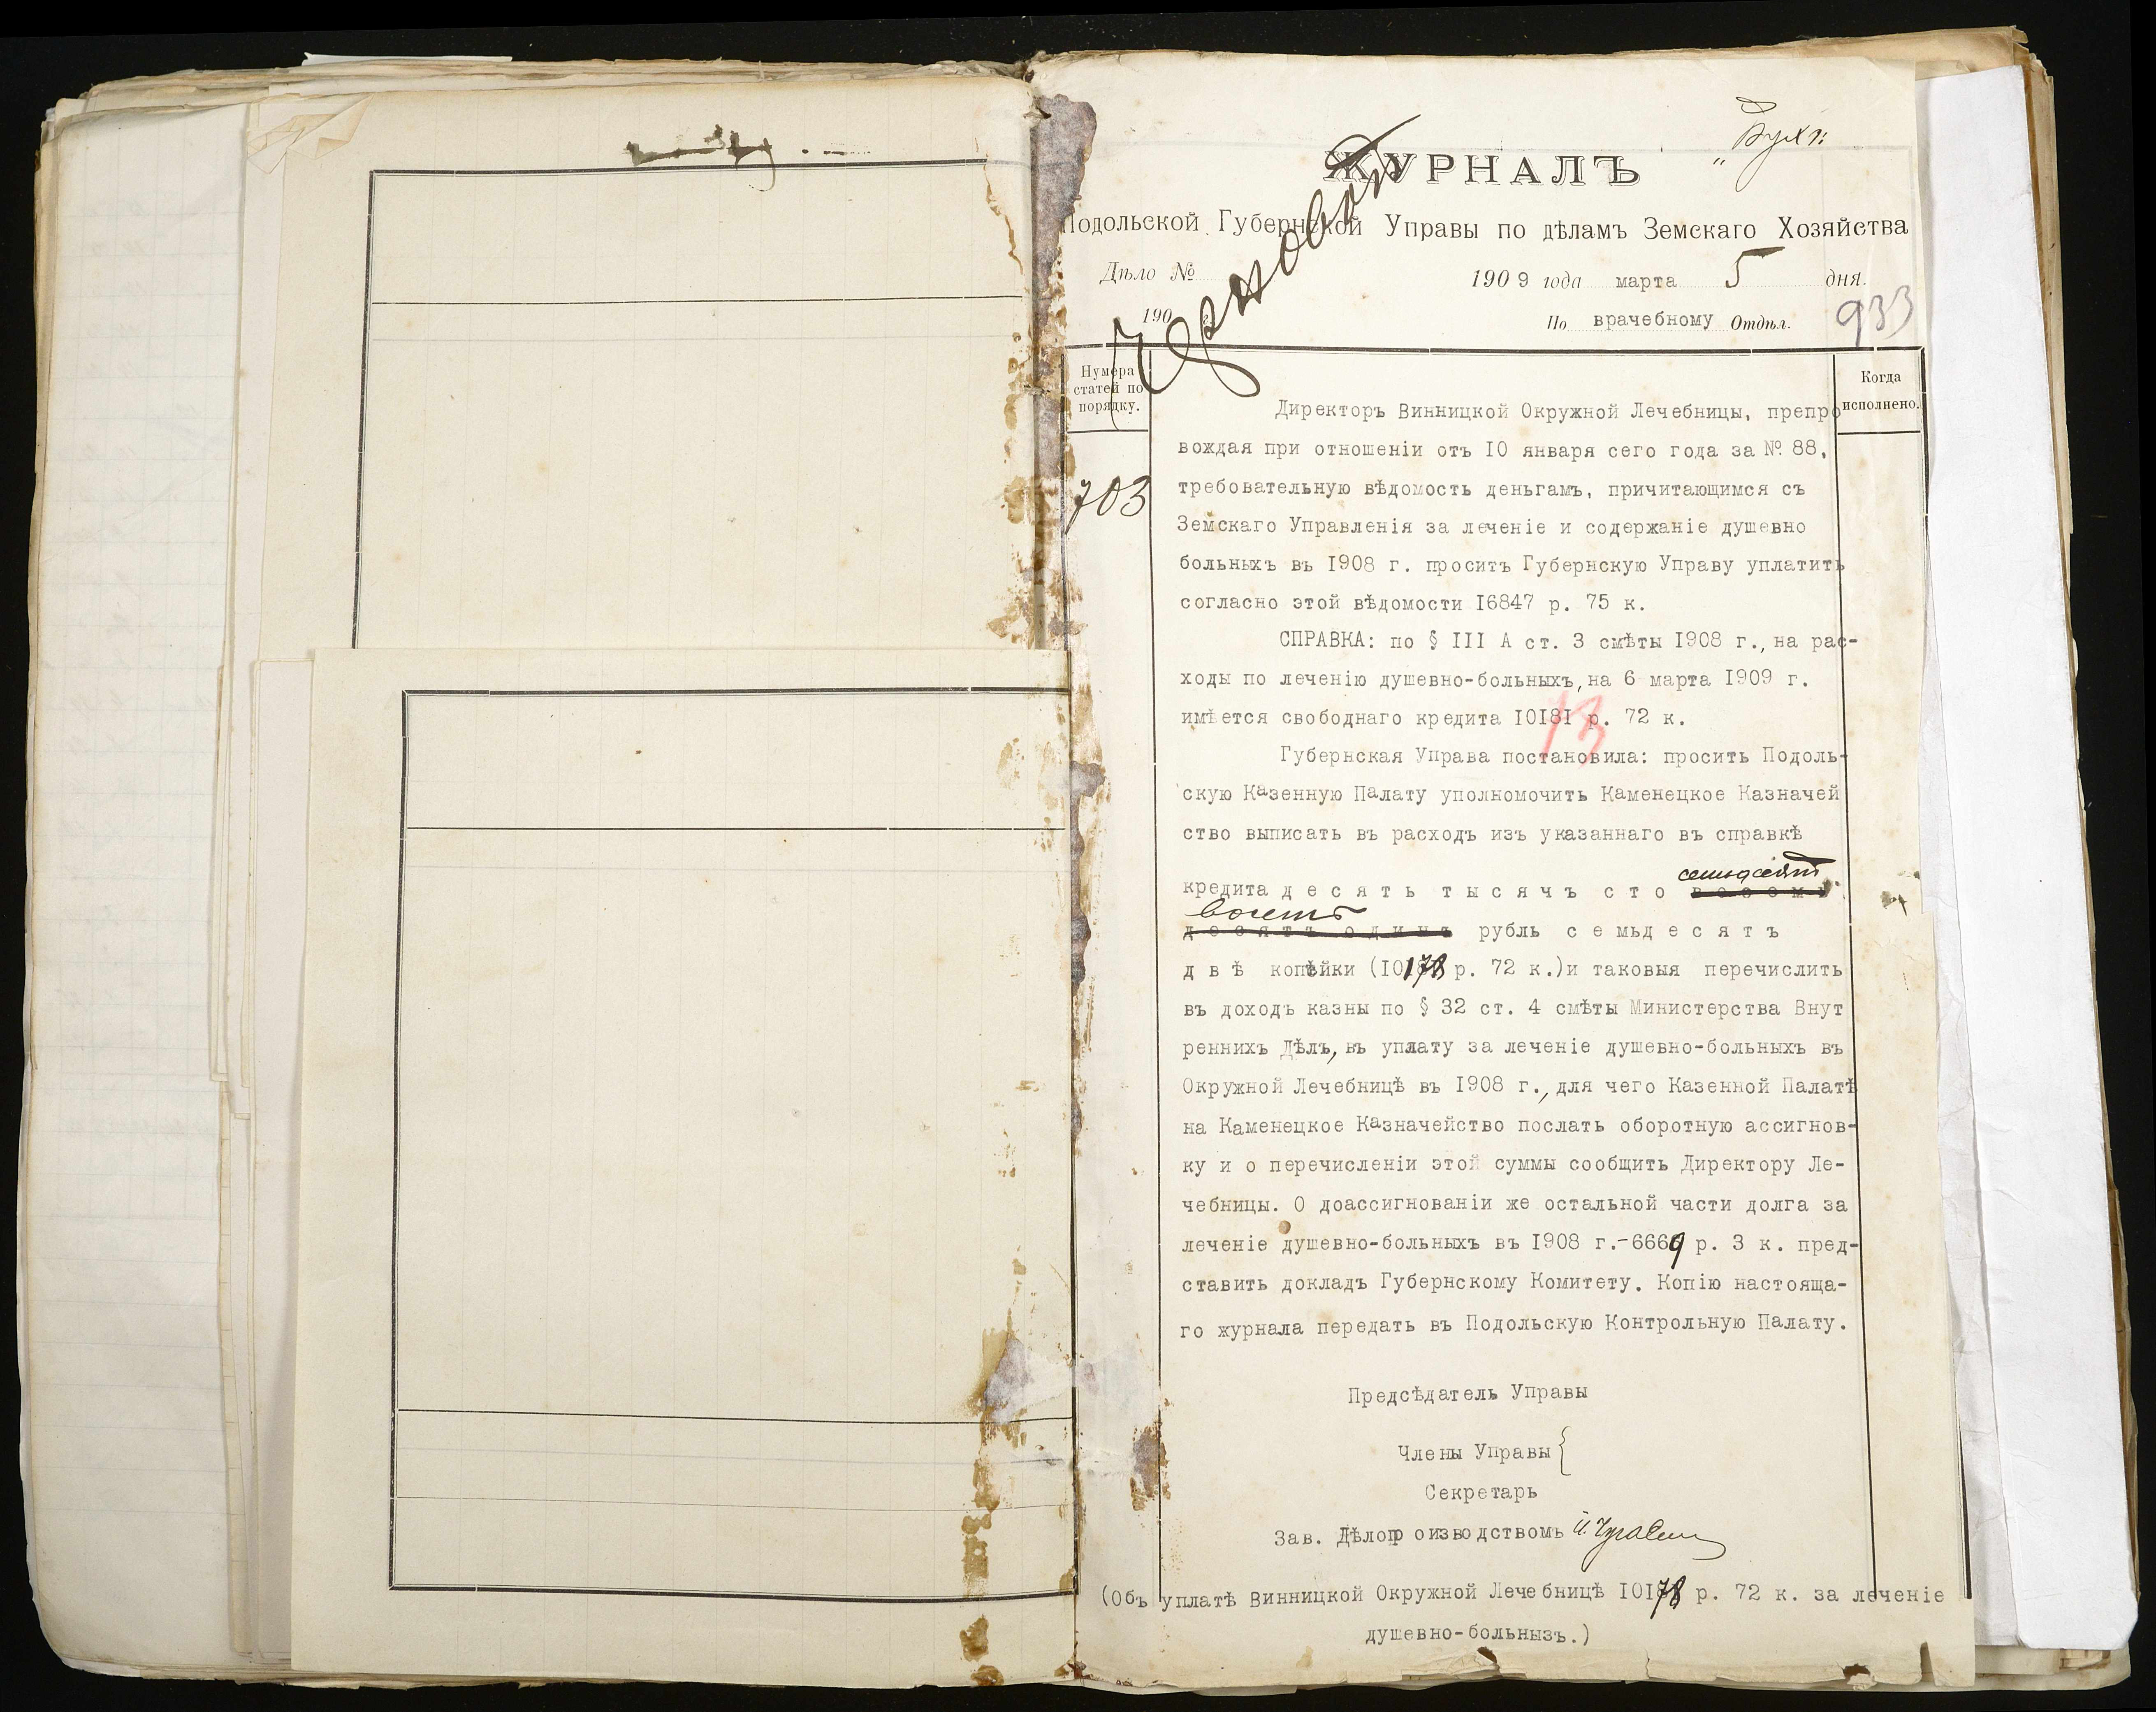 ЖУРНАЛЪ
Подольской Губернской Управы по дѣламъ Земскаго Хозяйства
Дѣло №
1909 года марта 5 дня.
190
По врачебному Отдѣл.
933
Нумера
статей по
порядку.
Когда
исполнено.
703
Директоръ Винницкой Окружной Лечебницы, препро
вождая при отношеніи отъ 10 января сего года за № 88,
требовательную вѣдомость деньгамъ, причитающимся съ
Земскаго Управленія за леченіе и содержаніе душевно
больныхъ въ 1908 г. проситъ Губернскую Управу уплатить
согласно этой вѣдомости 16847 р. 75 к.
СПРАВКА: по § III А ст. 3 смѣты 1908 г., на рас-
ходы по леченію душевно-больныхъ, на 6 марта 1909 г.
имѣется свободнаго кредита 10181 р. 72 к.
13
Губернская Управа постановила: просить Подоль-
скую Казенную Палату уполномочить Каменецкое Казначей
ство выписать въ расходъ изъ указаннаго въ справкѣ
семьдесятъ
кредита десять тысячъ сто восемь
восемь
десятъ одинъ рубль семьдесятъ
двѣ копѣйки (10178 р. 72 к.) и таковыя перечислить
въ доходъ казны по § 32 ст. 4 смѣты Министерства Внут
реннихъ Дѣлъ, въ уплату за леченіе душевно-больныхъ въ
Окружной Лечебницѣ въ 1908 г., для чего Казенной Палатѣ
на Каменецкое Казначейство послать оборотную ассигнов-
ку и о перечисленіи этой суммы сообщить Директору Ле-
чебницы. О доассигнованіи же остальной части долга за
леченіе душевно-больныхъ въ 1908 г.-6669 р. 3 к. пред-
ставить докладъ Губернскому Комитету. Копію настояща-
го журнала передать въ Подольскую Контрольную Палату.
Предсѣдатель Управы
Члены Управы {
Секретарь
Зав. Дѣлопроизводствомъ
(Объ уплатѣ Винницкой Окружной Лечебницѣ 10178 р. 72 к. за леченіе
душевно-больнызъ.)